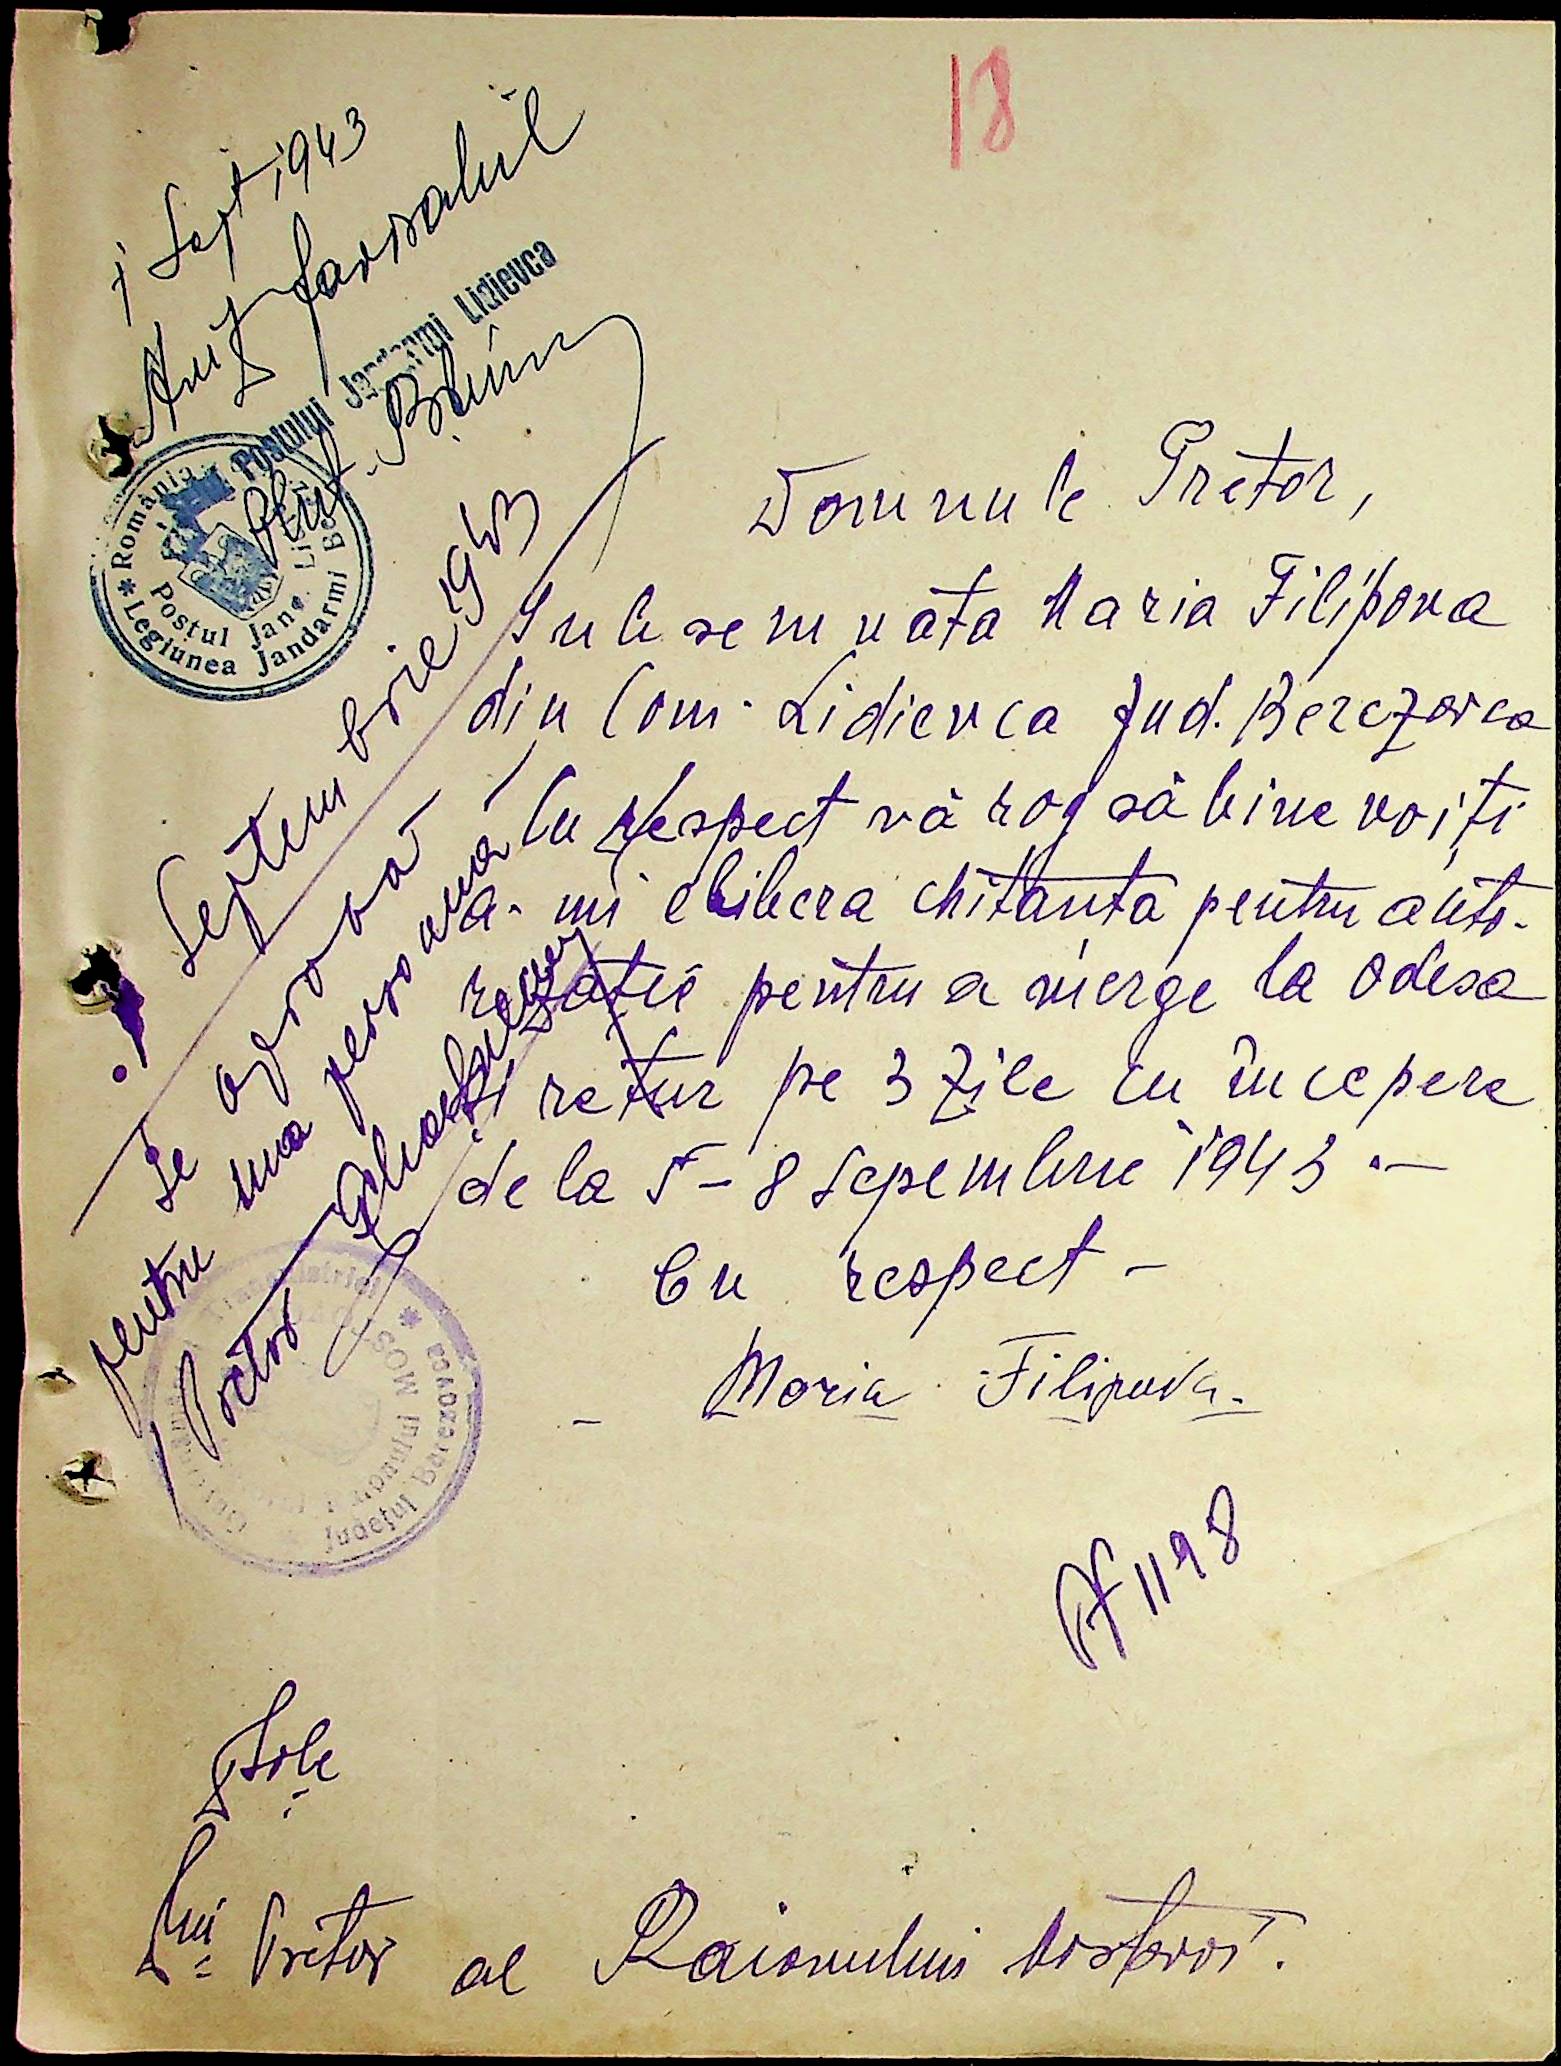 18
1 Sept 1943
Aviz favorabil
Șeful Postului Jandarmi Lidievca
Plut.
România
Postul Jand. Lidievca
Legiunea Jandarmi Be
Septembrie 1943
Se aprobă
pentru una persoană
Pretor
Județul Berezovca
Domnule Pretor,
Subsemnata Maria Filipova
din Com. Lidievca Jud. Berezovca
Cu respect vă rog să bine voiți
a-mi elibera chitanta pentru auto-
rizației pentru a merge la Odesa
și retur pe 3 zile cu începere
de la 5-8 Sepembrie 1943.-
Cu respect -
- Maria Filipova.
1198
Dsale
Lui Pretor al Raionului Mostovoi.